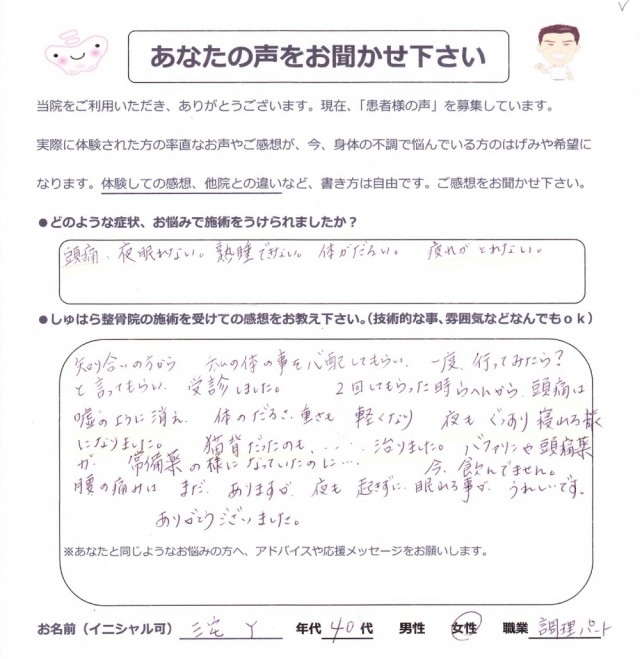 あなたの声をお聞かせ下さい
当院をご利用いただき、ありがとうございます。現在、「患者様の声」を募集しています。
実際に体験された方の率直なお声やご感想が、今、身体の不調で悩んでいる方のはげみや希望に
なります。体験しての感想、他院との違いなど、書き方は自由です。ご感想をお聞かせ下さい。
●どのような症状、お悩みで施術をうけられましたか？
頭痛、夜眠れない。熟睡できない。体がだるい。疲れがとれない。
●しゅはら整骨院の施術を受けての感想をお教え下さい。（技術的な事、雰囲気などなんでもｏｋ）
知り合いの方から 私の体の事を心配してもらい、一度、行ってみたら？
と言ってもらい、受診しました。 2回してもらった時らへんから、頭痛は
嘘のように消え、体のだるさ、重さも 軽くなり 夜も ぐっすり寝れる様
になりました。 猫背だったのも、・・・・治りました。バファリンや頭痛薬
が、常備薬の様になっていたのに・・・ 今、飲んでません。
腰の痛みは まだ、ありますが、夜も 起きずに 眠れる事が、うれしいです。
ありがとうございました。
※あなたと同じようなお悩みの方へ、アドバイスや応援メッセージをお願いします。
お名前（イニシャル可） 三宅 Y 年代 40 代 男性 女性 職業 調理パート